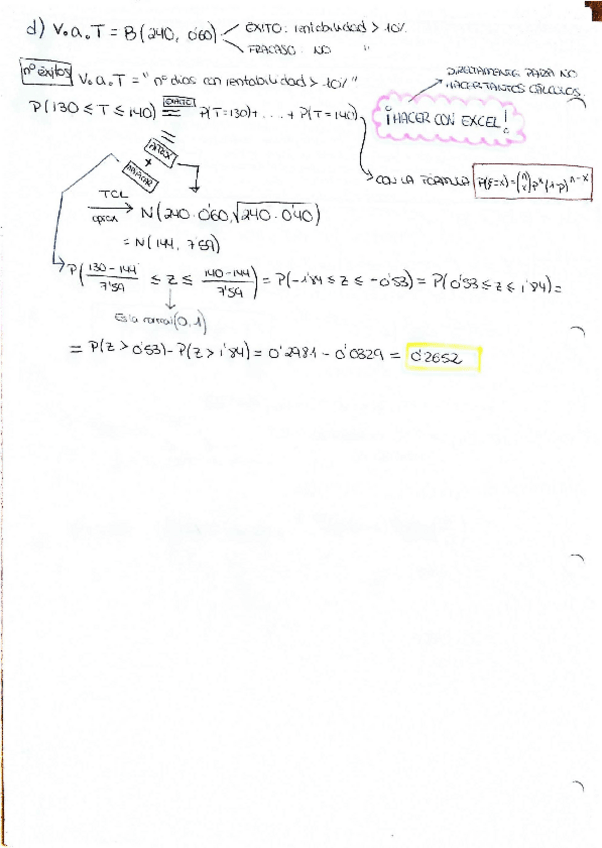 d) V.a.T = B(240, 0'60) < ÉXITO: rentabilidad > 10%
FRACASO: NO "
nº éxitos V.a.T = "nº dias con rentabilidad > 10%"
DIRECTAMENTE PARA NO
HACER TANTOS CÁLCULOS.
P(130 ≤ T ≤ 140) EXACTO = P(T=130) + ... + P(T=140)
¡HACER CON EXCEL!
CON LA FÓRMULA P(ξ=x) = (n x) p^x (1-p)^n-x
APROX
+
TCL
aprox N(240·0'60, √240·0'40)
= N(144, 7'59)
P(130-144/7'59 ≤ Z ≤ 140-144/7'59) = P(-1'84 ≤ Z ≤ -0'53) = P(0'53 ≤ Z ≤ 1'84) =
Es la normal (0,1)
= P(Z > 0'53) - P(Z > 1'84) = 0'2981 - 0'0329 = 0'2652